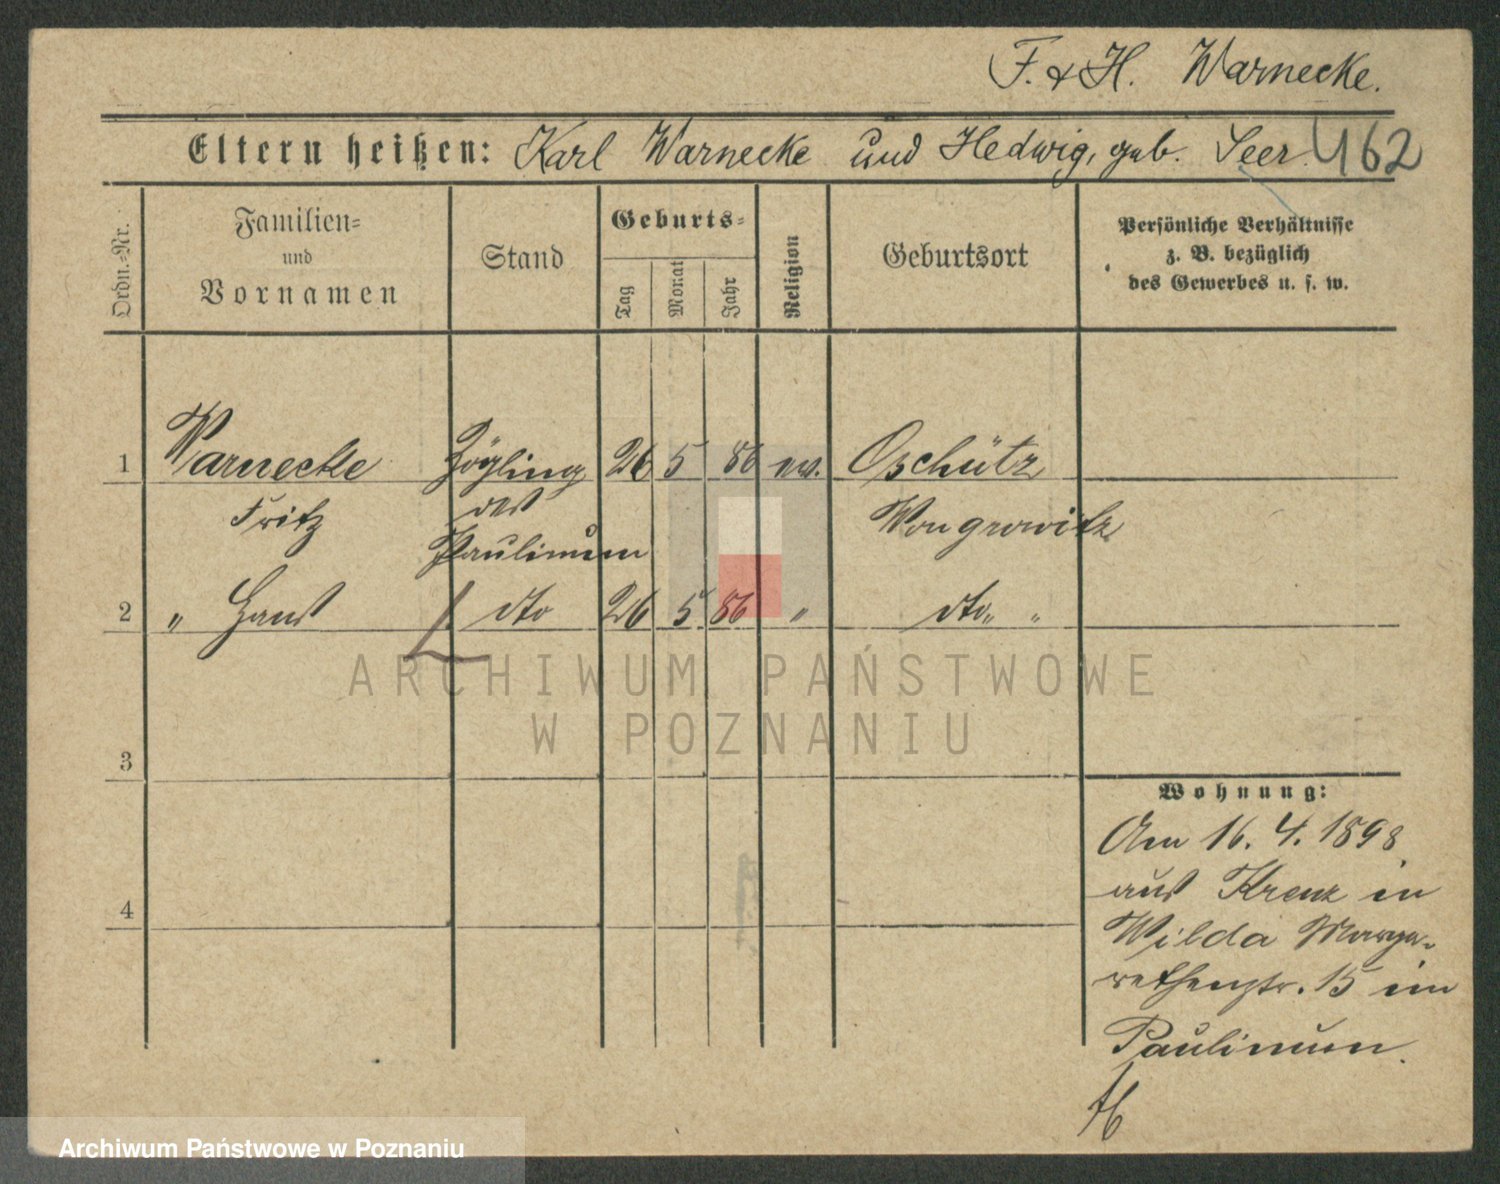 F. & H. Warnecke.
Eltern heißen: Karl Warnecke und Hedwig, geb. Seer. 462
Ordn.=Nr.
Familien=
und
Vornamen
Stand
Geburts=
Tag
Monat
Jahr
Religion
Geburtsort
Persönliche Verhältnisse
z. B. bezüglich
des Gewerbes u. s. w.
1 Warnecke Zögling 26 5 86 ev. Oschütz
Fritz des Wongrowitz
Paulinum
2 " Hans dto 26 5 86 " dto " "
3
4
Wohnung:
Am 16. 4. 1898
aus Kreuz in
Wilda Marga-
rethenstr. 15 im
Paulinum.
ARCHIWUM PAŃSTWOWE
W POZNANIU
Archiwum Państwowe w Poznaniu